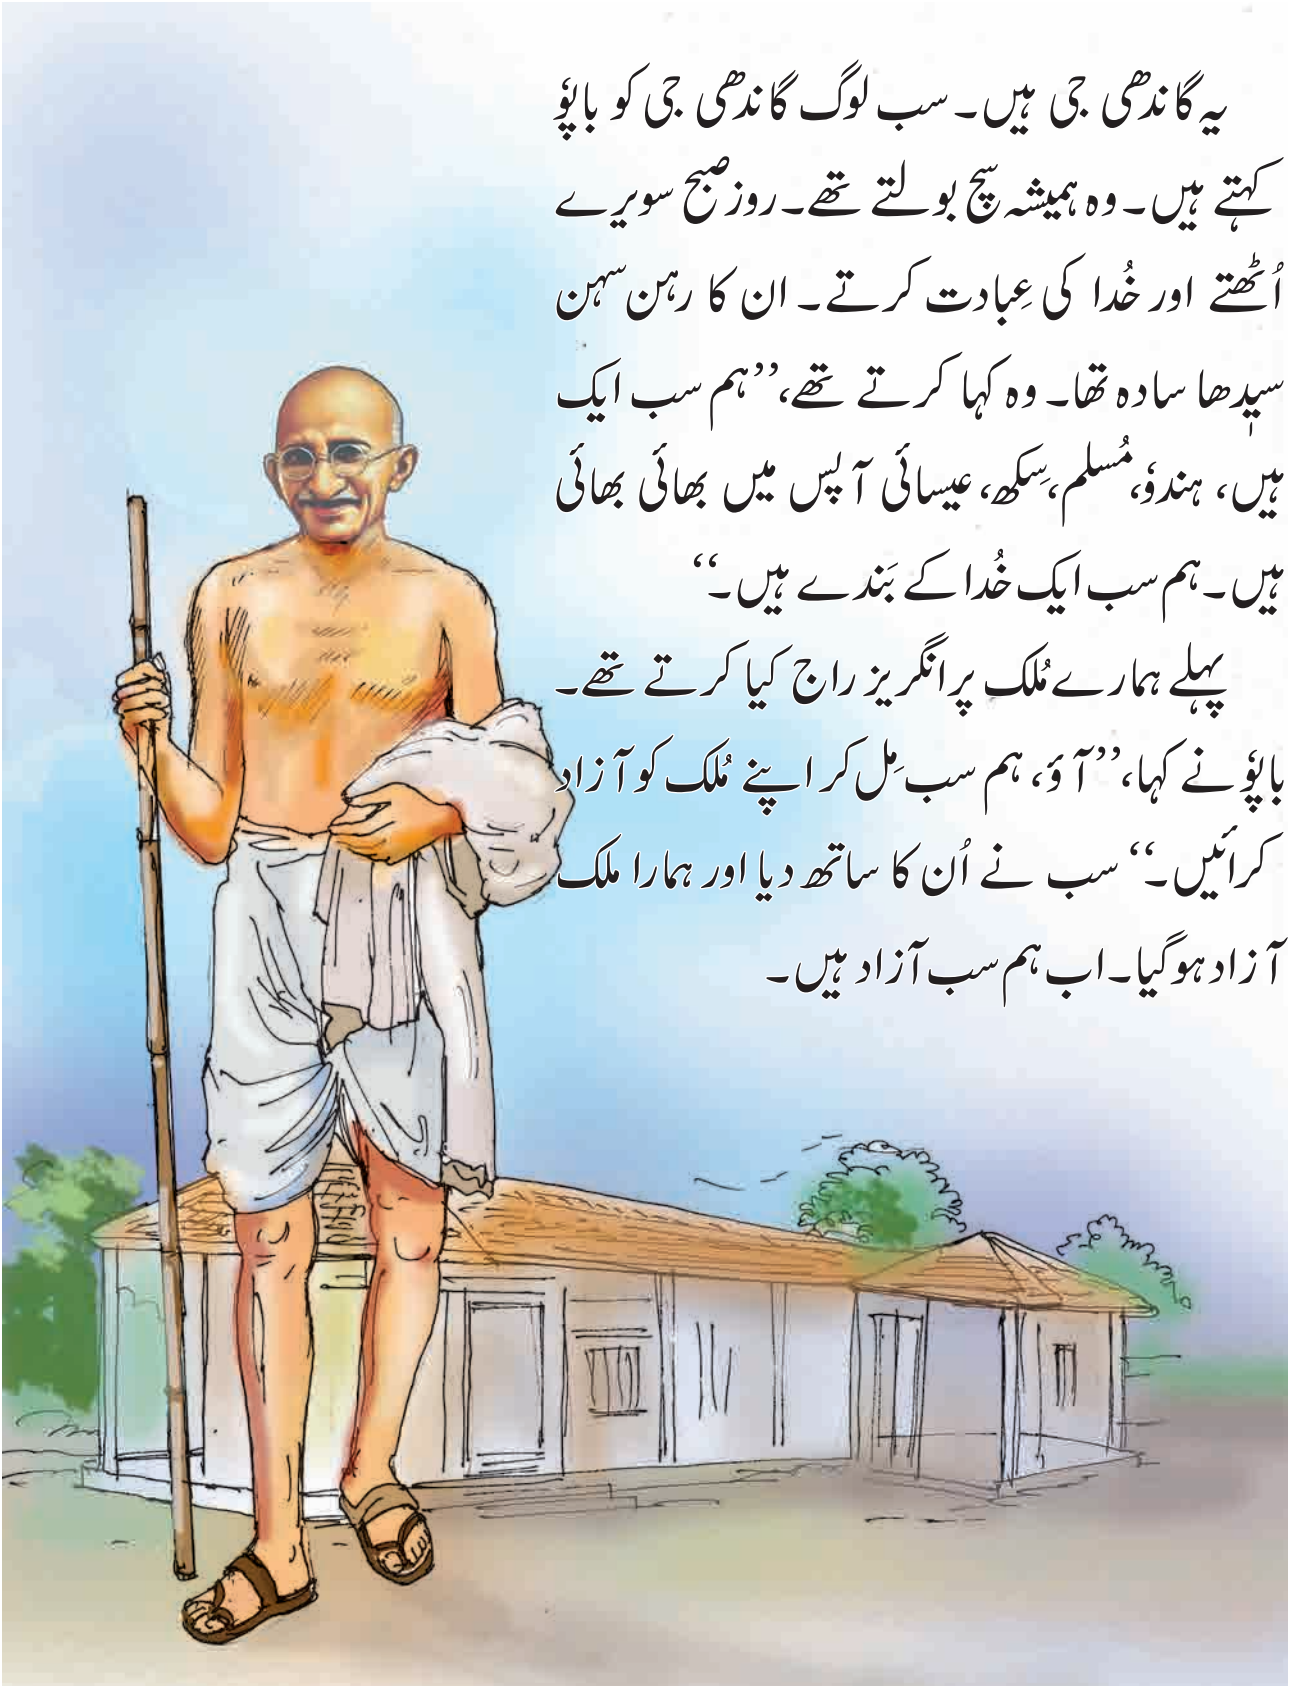 یہ گاندھی جی ہیں۔ سب لوگ گاندھی جی کو باپوٗ
کہتے ہیں۔ وہ ہمیشہ سچ بولتے تھے۔ روز صبح سویرے
اُٹھتے اور خُدا کی عِبادت کرتے۔ ان کا رہن سہن
سیٖدھا سادہ تھا۔ وہ کہا کرتے تھے، ’’ہم سب ایک
ہیں، ہندوٗ، مُسلم، سِکھ، عیسائی آپس میں بھائی بھائی
ہیں۔ ہم سب ایک خُدا کے بَندے ہیں۔‘‘
پہلے ہمارے مُلک پر انگریز راج کیا کرتے تھے۔
باپوٗ نے کہا، ’’آؤ، ہم سب مِل کر اپنے مُلک کو آزاد
کرائیں۔‘‘ سب نے اُن کا ساتھ دیا اور ہمارا ملک
آزاد ہوگیا۔ اب ہم سب آزاد ہیں۔